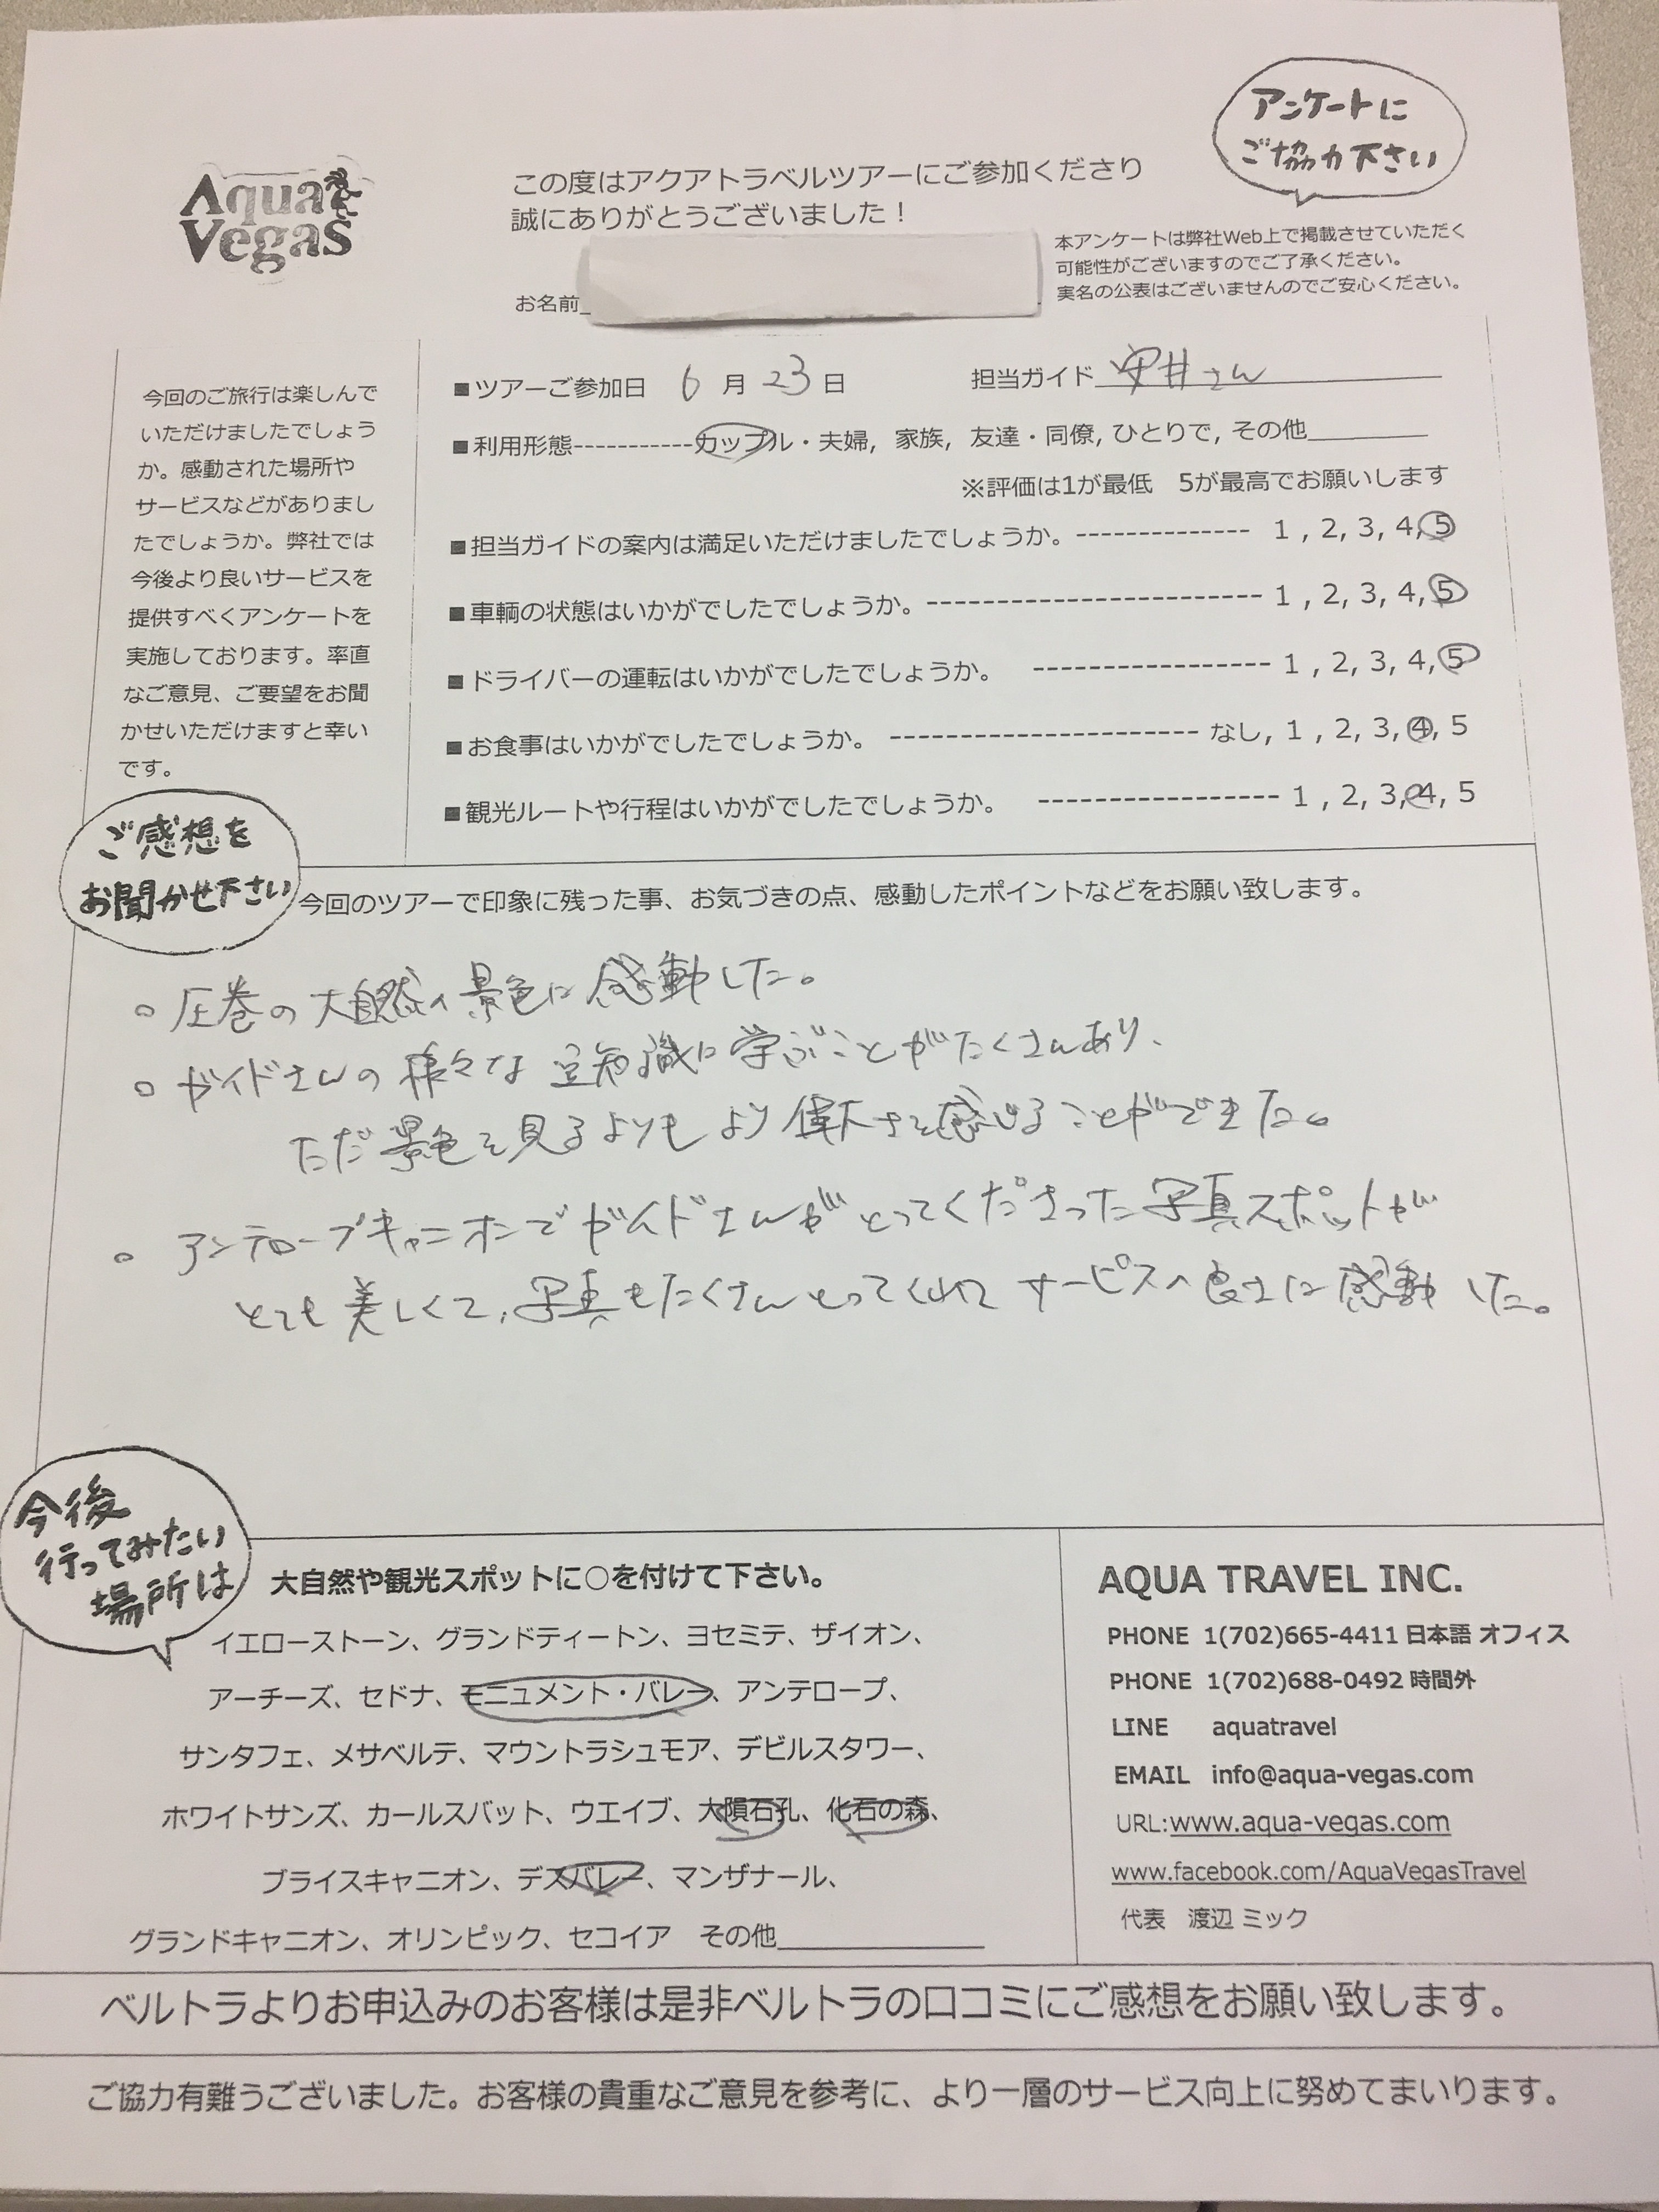 アンケートに
ご協力下さい
Aqua
Vegas
この度はアクアトラベルツアーにご参加くださり
誠にありがとうございました！
本アンケートは弊社Web上で掲載させていただく
可能性がございますのでご了承ください。
実名の公表はございませんのでご安心ください。
お名前
今回のご旅行は楽しんで
いただけましたでしょう
か。感動された場所や
サービスなどがありまし
たでしょうか。弊社では
今後より良いサービスを
提供すべくアンケートを
実施しております。率直
なご意見、ご要望をお聞
かせいただけますと幸い
です。
■ツアーご参加日 6 月 23 日 担当ガイド 安井さん
■利用形態-----------カップル・夫婦, 家族, 友達・同僚, ひとりで, その他
※評価は1が最低 5が最高でお願いします
■担当ガイドの案内は満足いただけましたでしょうか。-------------- 1 , 2, 3, 4, 5
■車輌の状態はいかがでしたでしょうか。------------------------ 1 , 2, 3, 4, 5
■ドライバーの運転はいかがでしたでしょうか。 ----------------- 1 , 2, 3, 4, 5
■お食事はいかがでしたでしょうか。 ---------------------- なし, 1 , 2, 3, 4, 5
■観光ルートや行程はいかがでしたでしょうか。 ----------------- 1 , 2, 3, 4, 5
ご感想を
お聞かせ下さい
今回のツアーで印象に残った事、お気づきの点、感動したポイントなどをお願い致します。
○ 圧巻の大自然の景色に感動した。
○ ガイドさんの様々な豆知識に学ぶことがたくさんあり、
ただ景色を見るよりもより偉大さを感じることができた。
○ アンテロープキャニオンでガイドさんがとってくださった写真スポットが
とても美しくて、写真もたくさんとってくれて サービスの良さに感動した。
今後
行ってみたい
場所は
大自然や観光スポットに○を付けて下さい。
イエローストーン、グランドティートン、ヨセミテ、ザイオン、
アーチーズ、セドナ、モニュメント・バレー、アンテロープ、
サンタフェ、メサベルテ、マウントラシュモア、デビルスタワー、
ホワイトサンズ、カールスバット、ウエイブ、大隕石孔、化石の森、
ブライスキャニオン、デスバレー、マンザナール、
グランドキャニオン、オリンピック、セコイア その他
AQUA TRAVEL INC.
PHONE 1(702)665-4411 日本語 オフィス
PHONE 1(702)688-0492 時間外
LINE aquatravel
EMAIL info@aqua-vegas.com
URL:www.aqua-vegas.com
www.facebook.com/AquaVegasTravel
代表 渡辺 ミック
ベルトラよりお申込みのお客様は是非ベルトラの口コミにご感想をお願い致します。
ご協力有難うございました。お客様の貴重なご意見を参考に、より一層のサービス向上に努めてまいります。